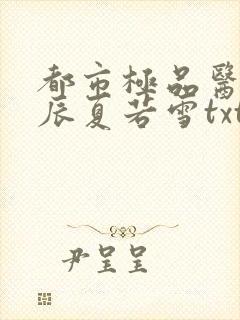 都市極品醫
辰夏若雪txt
尹呈呈